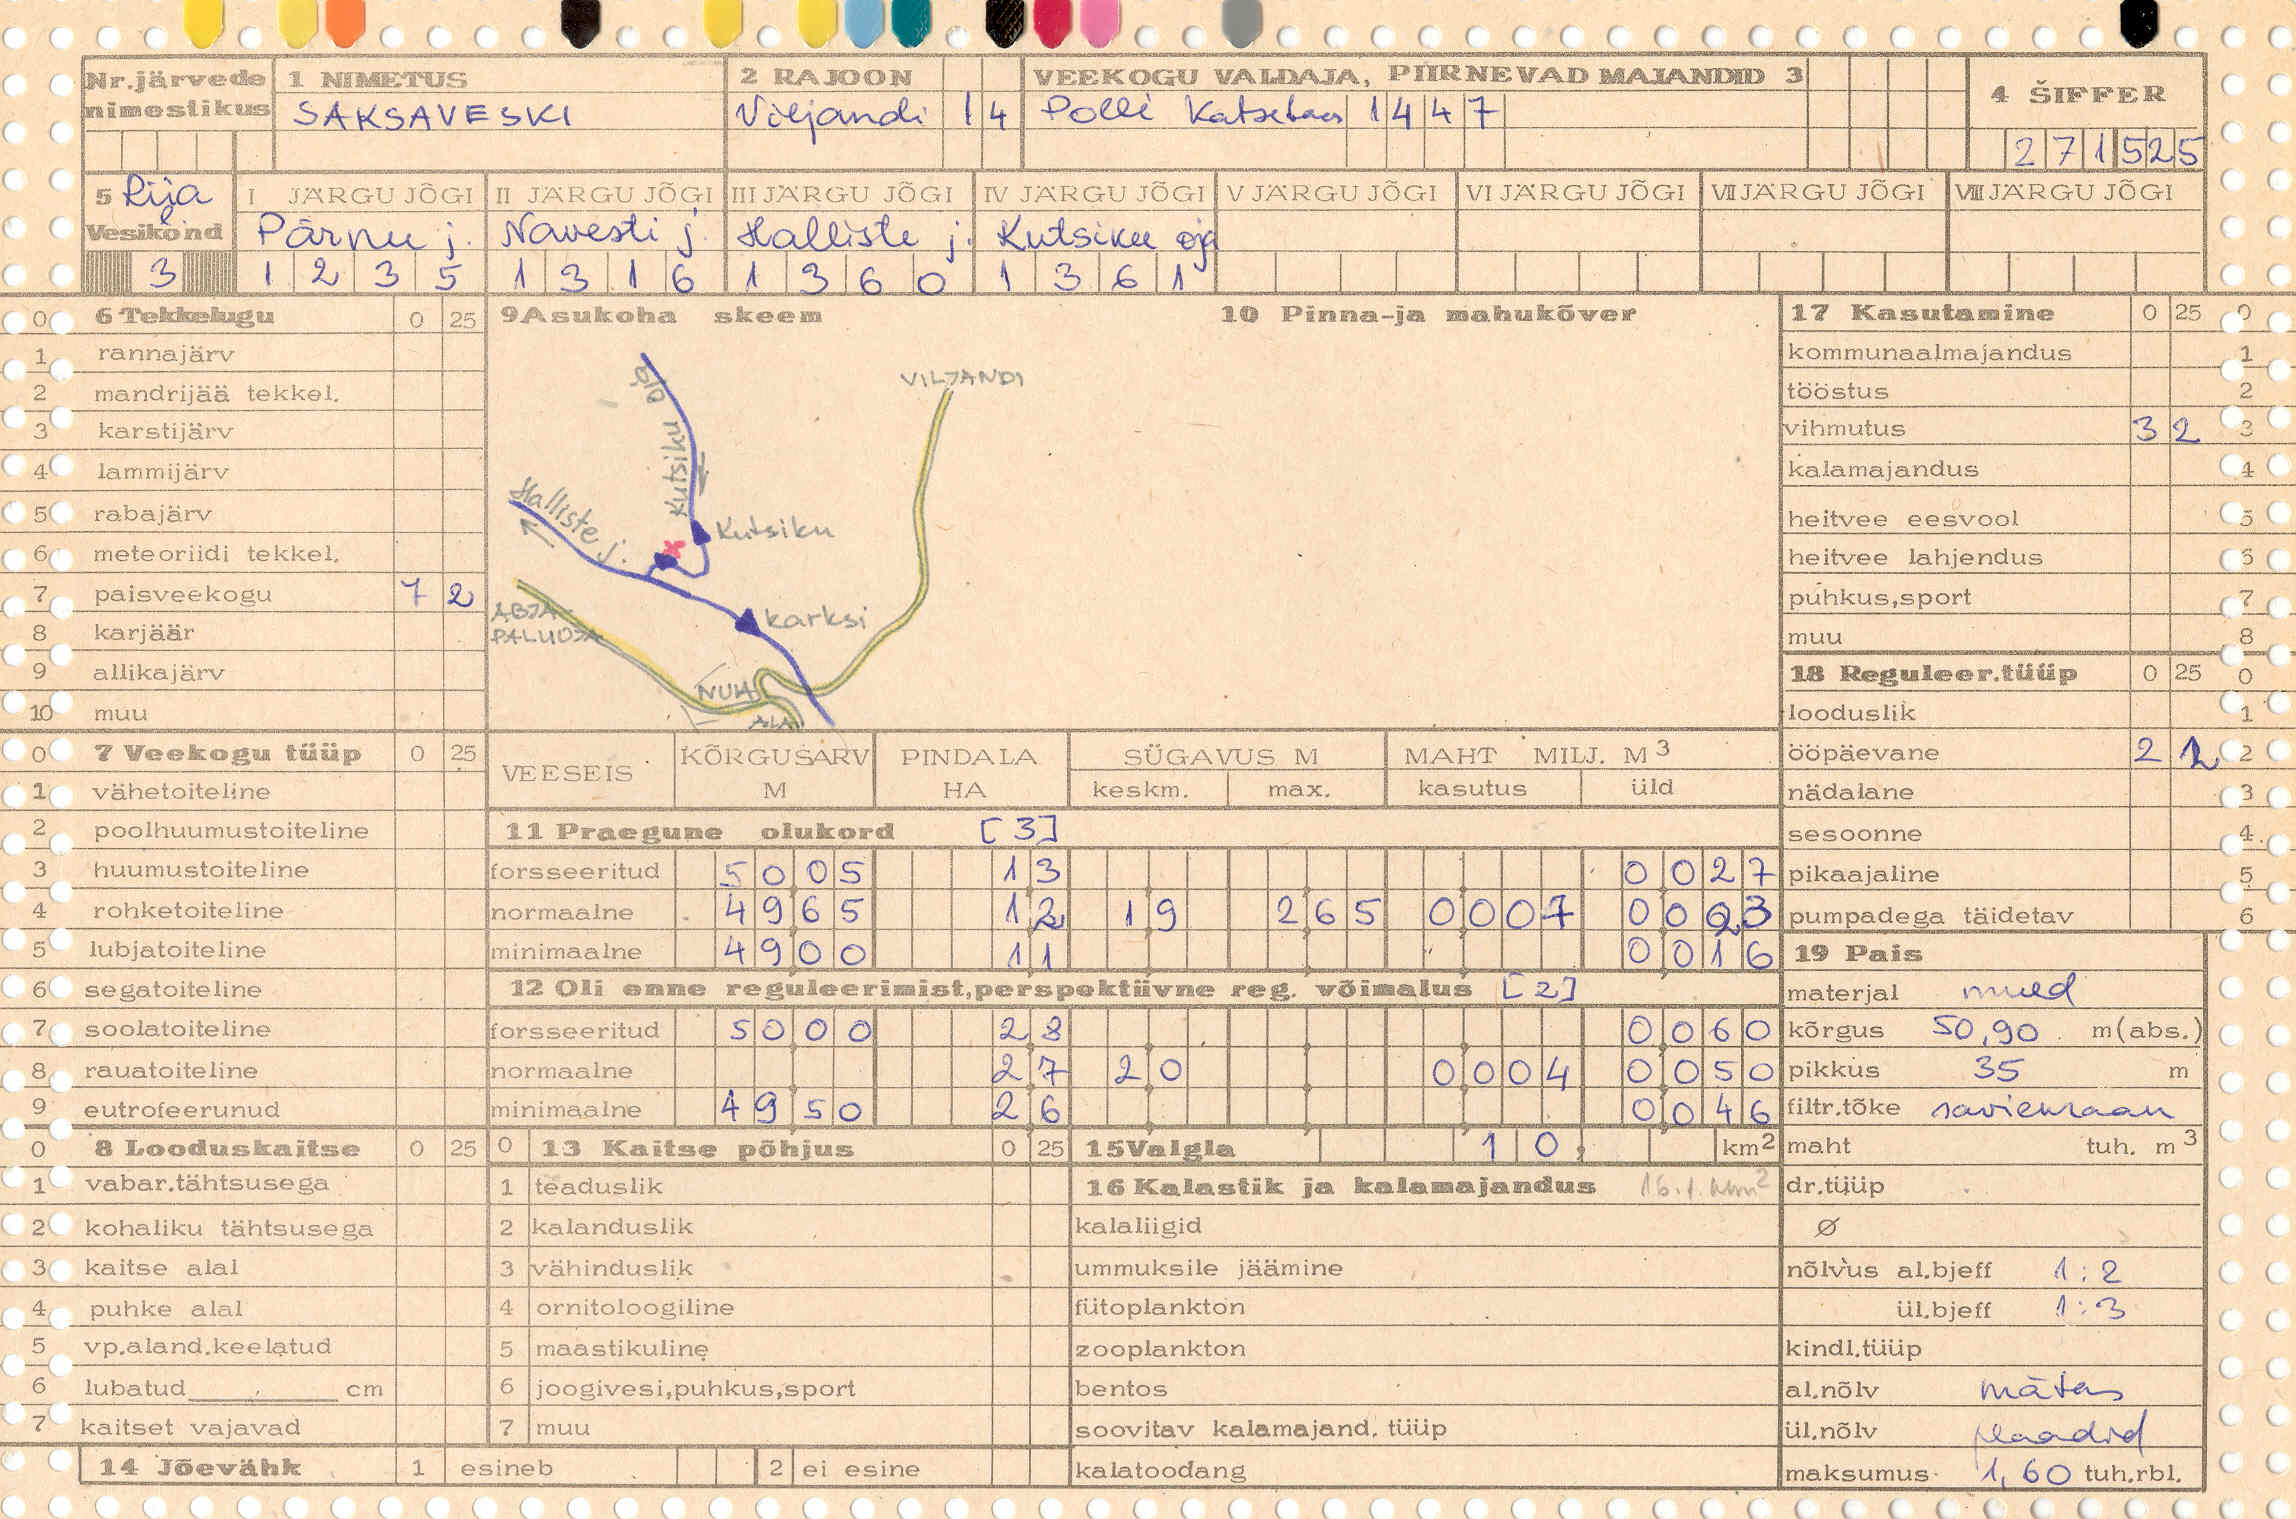 Nr.järvede nimestikus
1 NIMETUS
SAKSAVESKI
2 RAJOON
Viljandi 1 4
VEEKOGU VALDAJA, PIIRNEVAD MAJANDID 3
Polli Katsebaas 1 4 4 7
4 ŠIFFER
2 7 1 5 2 5
5 Riia Vesikond
3
I JÄRGU JÕGI
Pärnu j.
1 2 3 5
II JÄRGU JÕGI
Navesti j.
1 3 1 6
III JÄRGU JÕGI
Halliste j.
1 3 6 0
IV JÄRGU JÕGI
Kutsiku oja
1 3 6 1
V JÄRGU JÕGI
VI JÄRGU JÕGI
VII JÄRGU JÕGI
VIII JÄRGU JÕGI
0 6 Tekkelugu 0 25
1 rannajärv
2 mandrijää tekkel.
3 karstijärv
4 lammijärv
5 rabajärv
6 meteoriidi tekkel.
7 paisveekogu 7 2
8 karjäär
9 allikajärv
10 muu
0 7 Veekogu tüüp 0 25
1 vähetoiteline
2 poolhuumustoiteline
3 huumustoiteline
4 rohketoiteline
5 lubjatoiteline
6 segatoiteline
7 soolatoiteline
8 rauatoiteline
9 eutrofeerunud
0 8 Looduskaitse 0 25
1 vabar.tähtsusega
2 kohaliku tähtsusega
3 kaitse alal
4 puhke alal
5 vp.aland.keelatud
6 lubatud cm
7 kaitset vajavad
14 Jõevähk 1 esineb 2 ei esine
9 Asukoha skeem
10 Pinna-ja mahukõver
VILJANDI
Kutsiku oja
Halliste j.
Kutsiku
Karksi
ABJA-
PALUOJA
NUIA
VEESEIS
KÕRGUSARV M
PINDALA HA
SÜGAVUS M
keskm. max.
MAHT MILJ. M3
kasutus üld
11 Praegune olukord [3]
forsseeritud 5 0 0 5 1 3 0 0 2 7
normaalne 4 9 6 5 1 2 1 9 2 6 5 0 0 0 7 0 0 2 3
minimaalne 4 9 0 0 1 1 0 0 1 6
12 Oli enne reguleerimist,perspektiivne reg. võimalus [2]
forsseeritud 5 0 0 0 2 8 0 0 6 0
normaalne 2 7 2 0 0 0 0 4 0 0 5 0
minimaalne 4 9 5 0 2 6 0 0 4 6
0 13 Kaitse põhjus 0 25
1 teaduslik
2 kalanduslik
3 vähinduslik
4 ornitoloogiline
5 maastikuline
6 joogivesi,puhkus,sport
7 muu
15 Valgla 1 0, km2
16 Kalastik ja kalamajandus 16.1 km2
kalaliigid
ummuksile jäämine
fütoplankton
zooplankton
bentos
soovitav kalamajand. tüüp
kalatoodang
17 Kasutamine 0 25 0
kommunaalmajandus 1
tööstus 2
vihmutus 3 2 3
kalamajandus 4
heitvee eesvool 5
heitvee lahjendus 6
puhkus,sport 7
muu 8
18 Reguleer.tüüp 0 25 0
looduslik 1
ööpäevane 2 2 2
nädalane 3
sesoonne 4
pikaajaline 5
pumpadega täidetav 6
19 Pais
materjal muld
kõrgus 50,90 m(abs.)
pikkus 35 m
filtr.tõke saviekraan
maht tuh. m3
dr.tüüp
Ø
nõlvus al.bjeff 1:2
ül.bjeff 1:3
kindl.tüüp
al.nõlv mätas
ül.nõlv plaadid
maksumus 1,60 tuh.rbl.